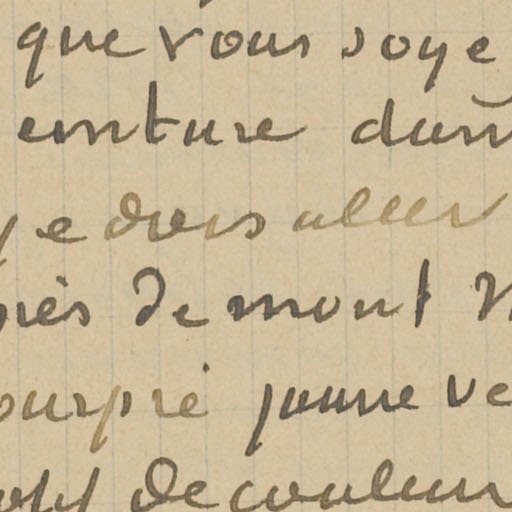 que vous soye
einture dan
je dois aller
près de mont
ourpre jaune ve
de couleur